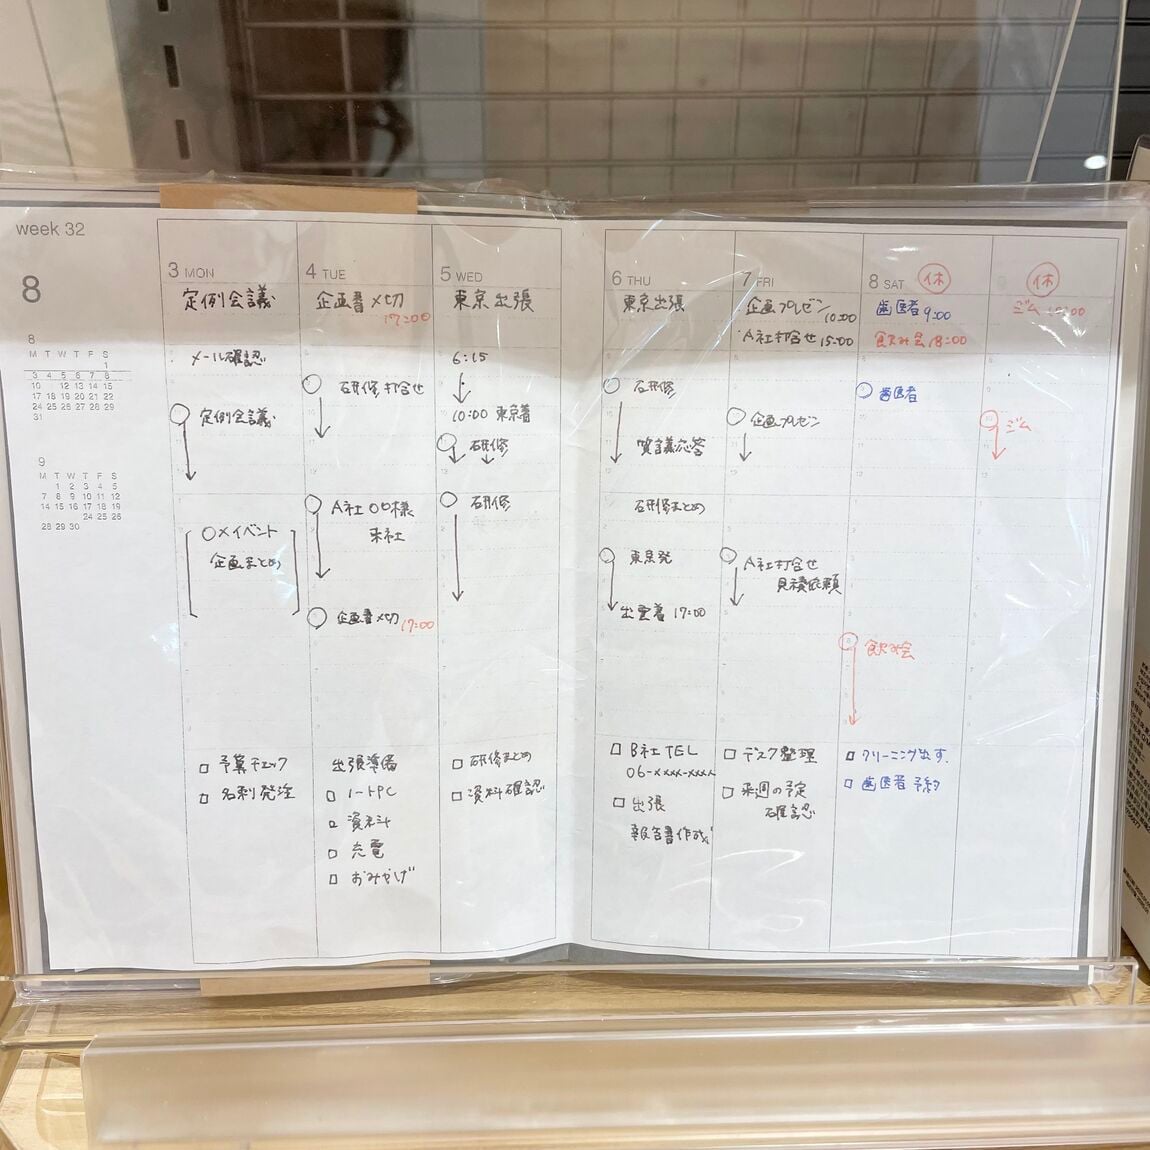 week 32
8
8
M T W T F S
1
3 4 5 6 7 8
10 12 13 14 15
17 18 19 20 21 22
24 25 26 27 28 29
31
9
M T W T F S
1 2 3 4 5
7 8 9 10 11 12
14 15 16 17 18 19
24 25 26
28 29 30
3 MON
定例会議
メール確認
定例会議
〇×イベント
企画まとめ
予算チェック
名刺発注
4 TUE
企画書〆切
17:00
研修打合せ
A社〇〇様
来社
企画書〆切 17:00
出張準備
ノートPC
資料
充電
おみやげ
5 WED
東京出張
6:15
10:00 東京着
研修
研修
研修まとめ
資料確認
6 THU
東京出張
研修
質議応答
研修まとめ
東京発
出雲着 17:00
B社TEL
06-xxxx-xxxx
出張
報告書作成
7 FRI
企画プレゼン 10:00
A社打合せ 15:00
企画プレゼン
A社打合せ
見積依頼
デスク整理
来週の予定
確認
8 SAT 休
歯医者 9:00
飲み会 18:00
歯医者
飲み会
クリーニング出す.
歯医者予約
休
ジム
ジム